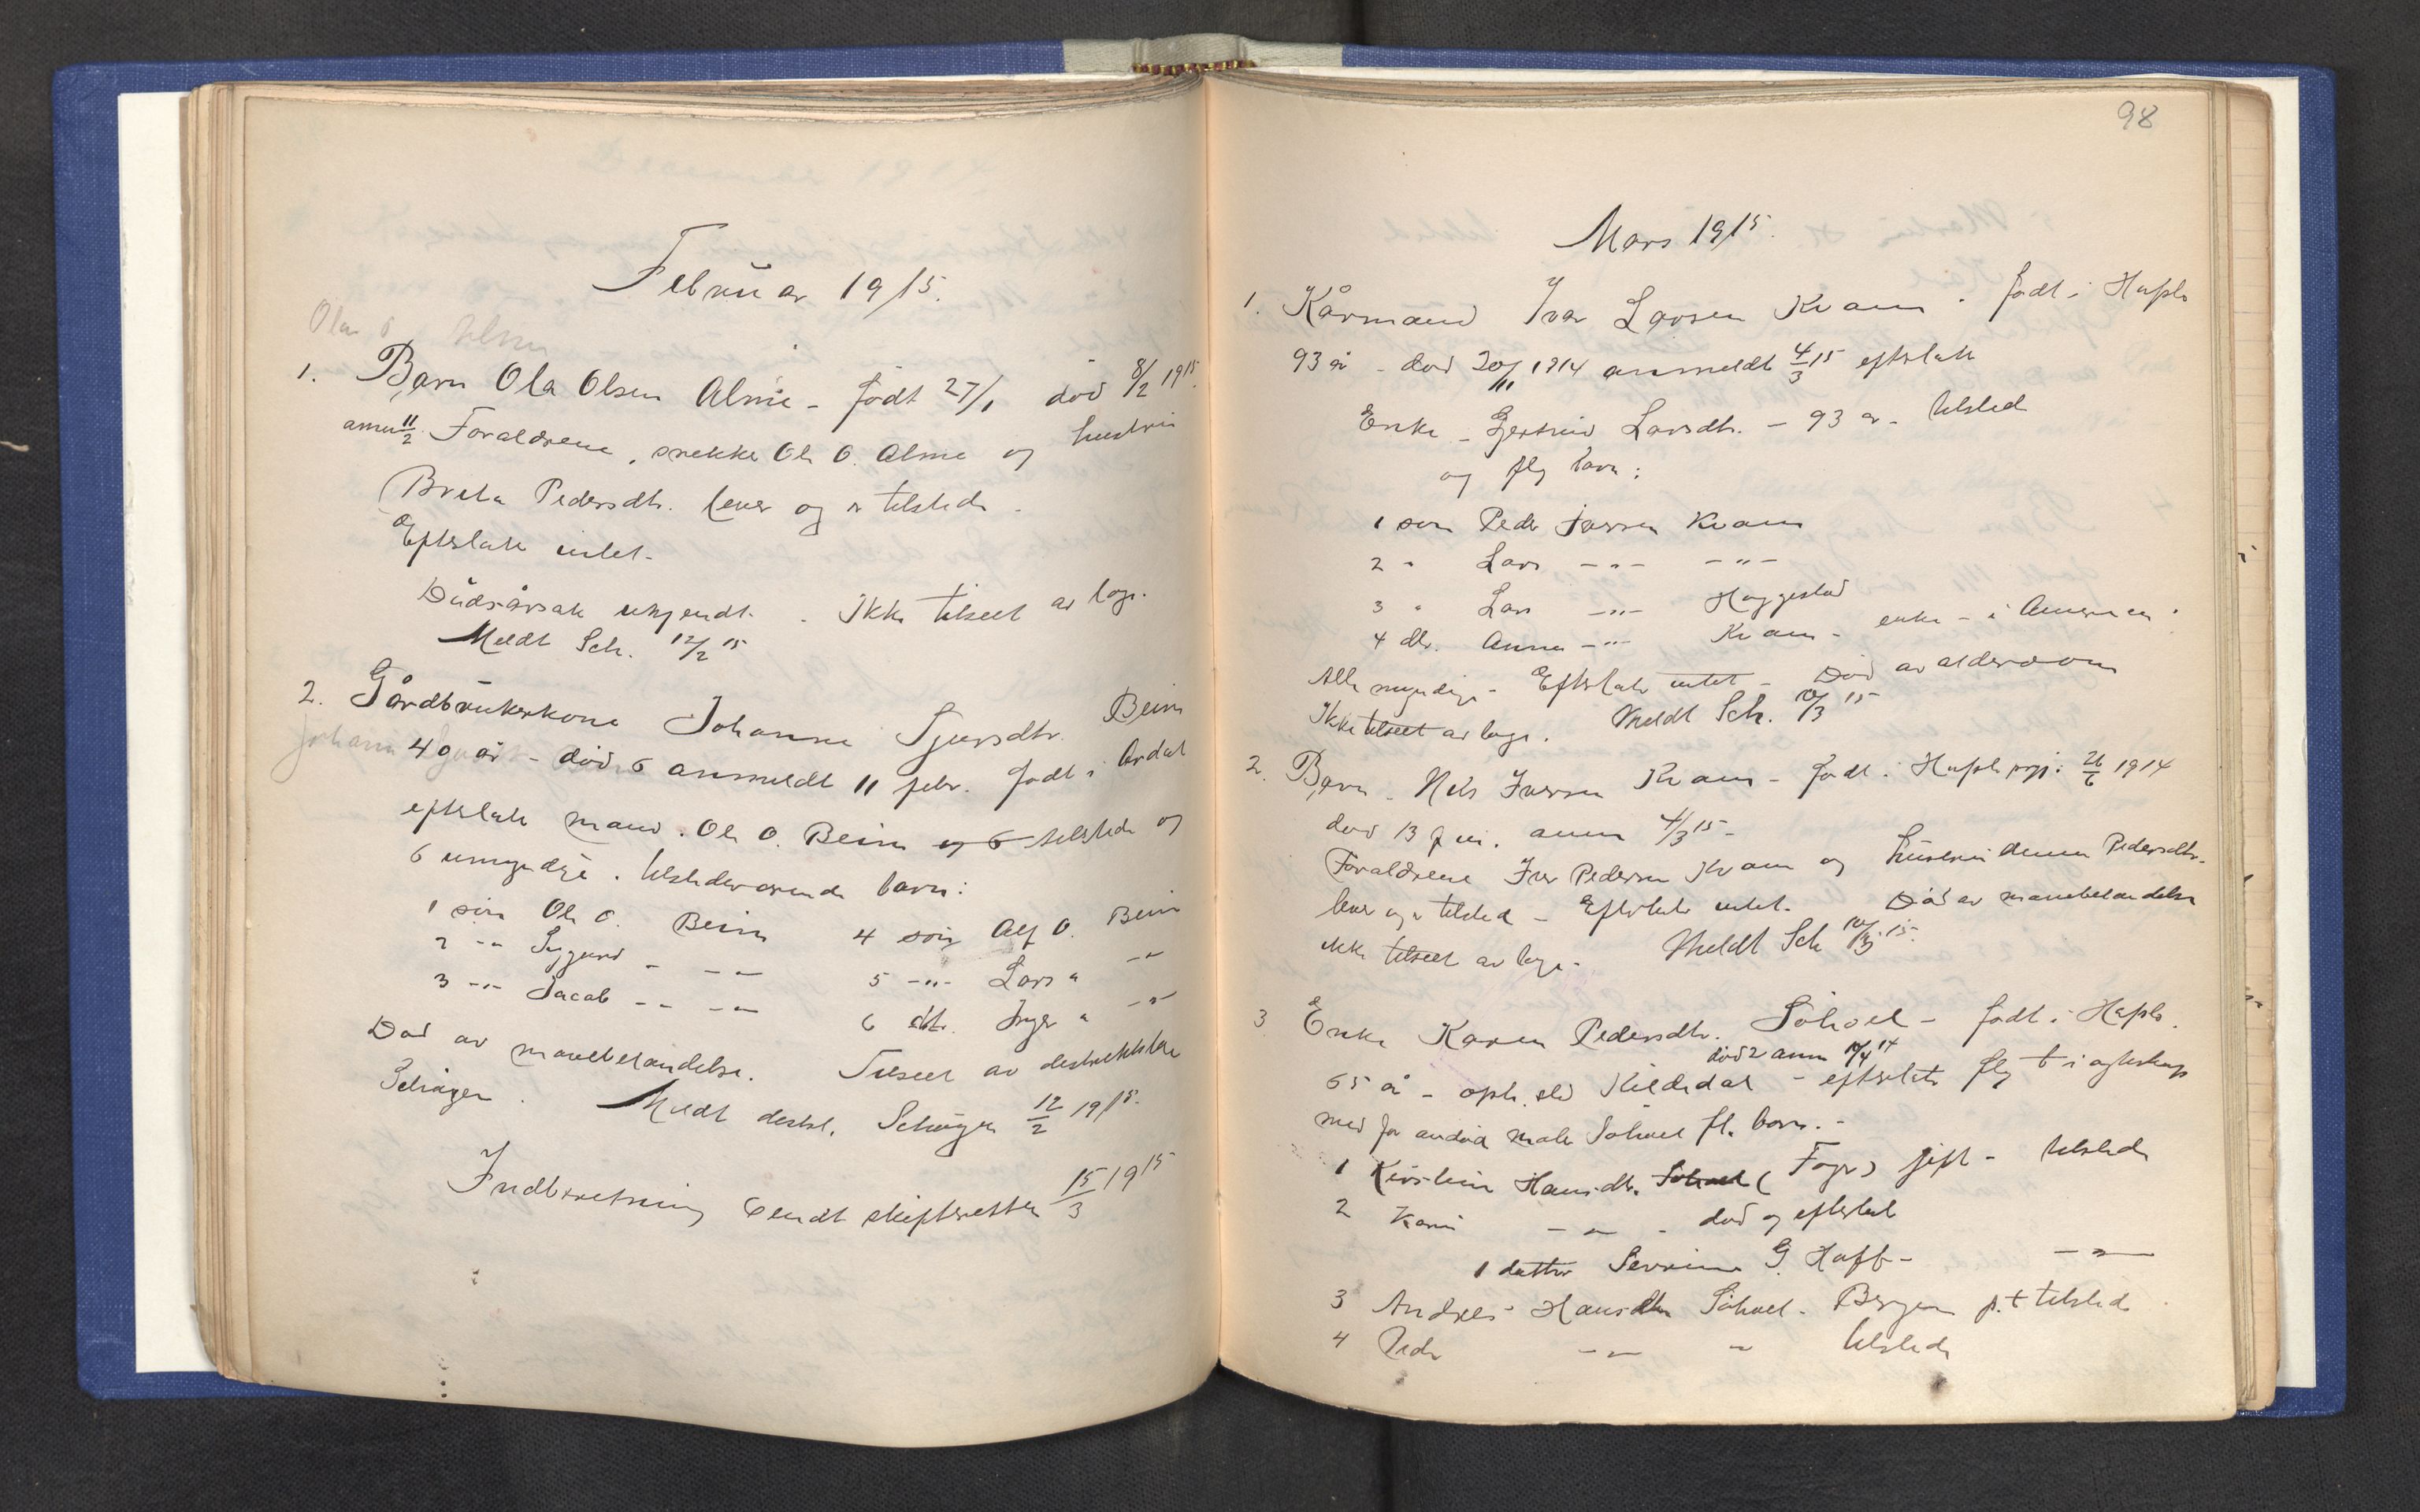 Februar 1915.
1. Barn Ola Olsen Alme - født 27/1 død 8/2 1915.
anm 11/2 Forældrene, snekker Ole O. Alme og hustru
Breta Pedersdtr. lever og er tilstede.
Efterlater intet.
Dødsårsak ukjendt. Ikke tilseet av læge.
Meldt Sch. 12/2 15
2. Gårdbrukerkone Johanne Sjursdtr. Beim
49 år - død 6 anmeldt 11 febr. født i Ardal
efterlater mand. Ole O. Beim og 6 tilstede og
6 umyndige. tilstedeværende barn:
1 søn Ole O. Beim 4 søn Alf O. Beim
2 -"- Syggurd - -"- 5 -"- Lars " -"-
3 -"- Jacob - - -"- 6 dtr. Inger " -"-
Død av mavebetændelse. Tilseet av destriktslæge
Schrøger. Meldt destsl. Schrøger 12/2 1915.
Indberetning sendt skifteretten 15/3 1915
98
Mars 1915.
1. Kårmand Ivar Larsen Kvam. født i Hafslo
93 år - død 20/11 1914 anmeldt 4/3 15 efterlater
Enke - Gjertrud Larsdtr. - 93 år. tilsted
og flg barn:
1 søn Peder Iversen Kvam
2 " Lars -"- -"-
3 " Lars -"- Haggestad
4 dtr. Anna -"- Kvam - enke - i Amerika.
Alle myndige. Efterlater intet - Død av alderdom
Ikke tilseet av læge. Meldt Sch. 10/3 15
2. Barn. Nils Iversen Kvam - født i Hafslo prgj. 26/6 1914
død 13 anm 4/3 15 -
Forældrene Iver Pedersen Kvam og hustru Anna Pedersdtr.
lever og er tilsted - Efterlater intet. Død av mavebetændelse
ikke tilseet av læge. Meldt Sch 10/3 15.
3 Enke Karen Pedersdtr. Solvoel - født i Hafslo.
død 2 anm
65 år - oph. sted Kildedal - efterlater flg i ægteskap
med før avdød
1 Kirstin Hansdtr. gift - tilstede
2 Kari -"- - død og efterlat
1 datter Sevrine G. Haff - -"-
3 Andreas Hansen Solvoel. Bergen p.t tilsted
4 Peder -"- " tilstede